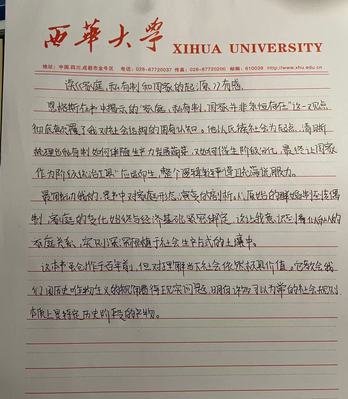 西華大學 XIHUA UNIVERSITY
地址:中国.四川.成都市金牛区 电话:028-87720037 传真:028-87720200 邮编:610039 http://www.xhu.edu.cn
读《家庭、私有制和国家的起源》有感
恩格斯在书中揭示的“家庭、私有制、国家并非永恒存在”这一观点
彻底颠覆了我对社会结构的固有认知。他从氏族社会为起点,清晰
梳理出私有制如何伴随生产力发展萌芽,又如何催生阶级分化,最终让国家
作为“阶级统治工具”应运而生,整个逻辑链严谨且充满说服力。
最触动我的,是书中对家庭形态演变的剖析。从原始的群婚制到对偶
制,家庭的变化始终与经济基础紧密绑定,这让我意识到看似私人的
家庭关系,实则深深根植于社会生产方式的土壤中。
这本书虽创作于百年前,但对理解当下社会依然极具价值。它教会我
们用历史唯物主义的视角看待现实问题,明白许多习以为常的社会规则
本质上是特定历史阶段的产物。